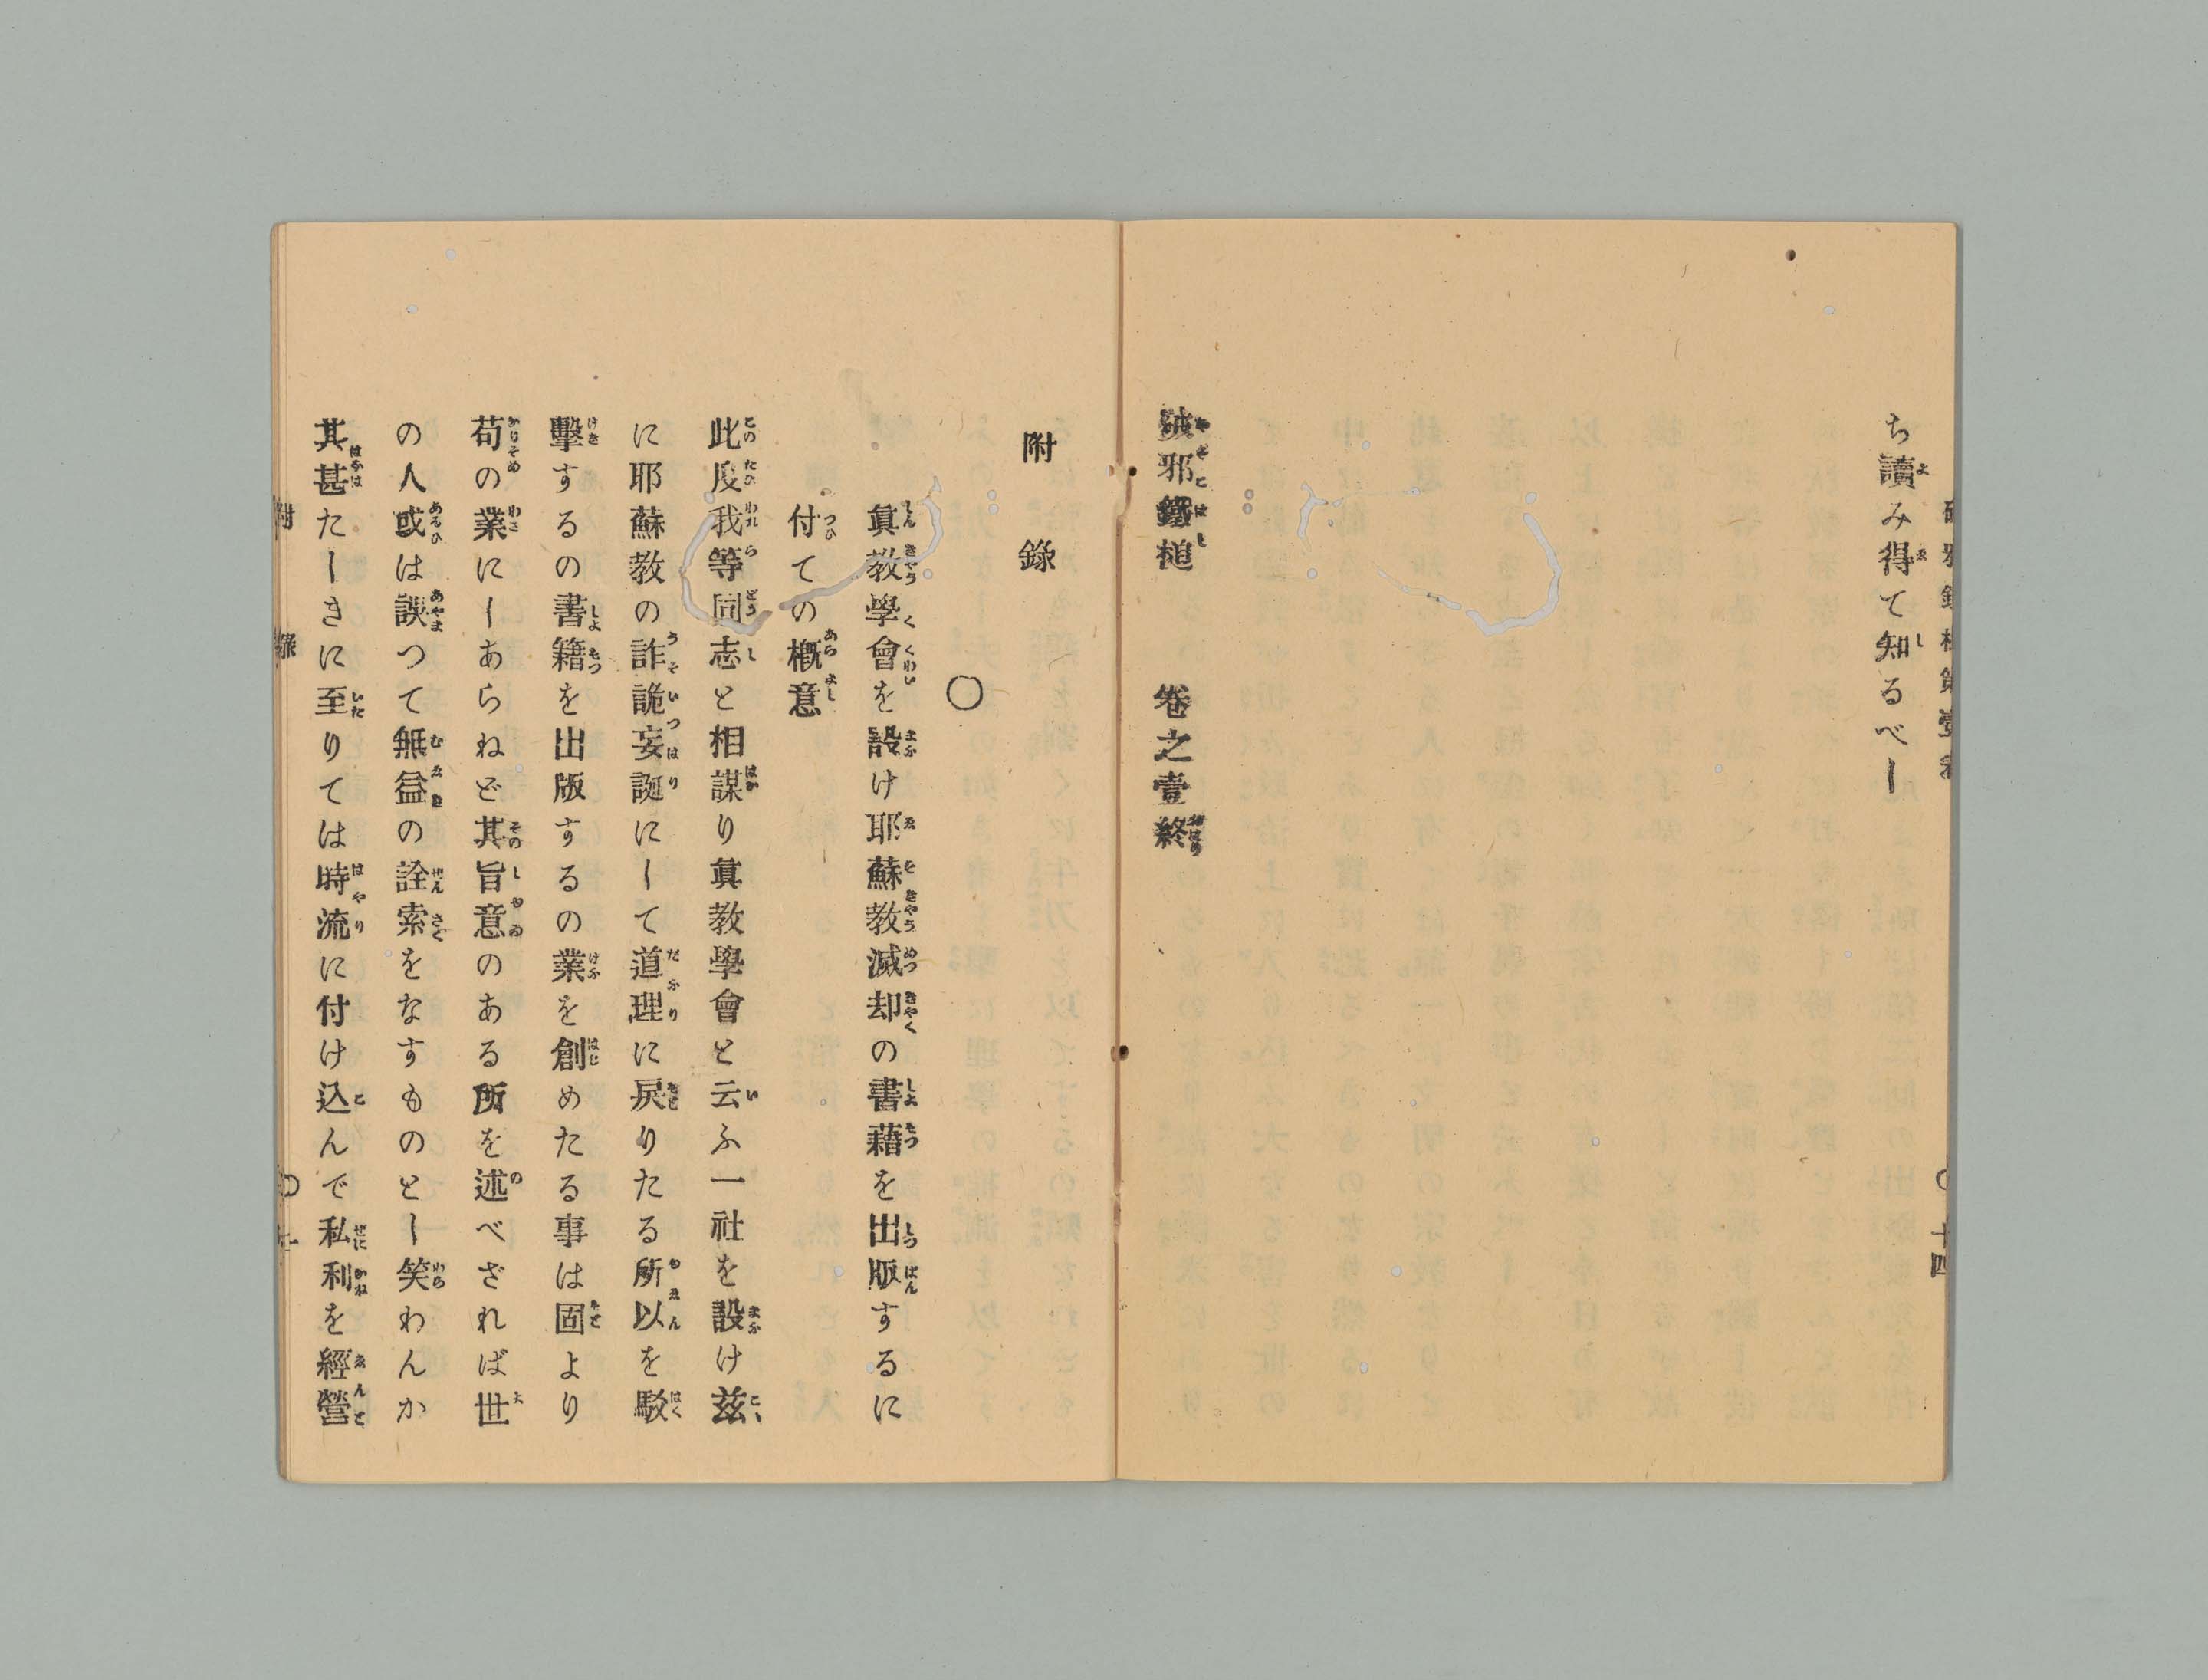 ち讀み得て知るべし
破邪鐵槌　卷之壹終
附錄
○
眞教學會を設け耶蘇教滅却の書藉を出版するに
付ての概意
此度我等同志と相謀り眞教學會と云ふ一社を設け茲
に耶蘇教の詐詭妄誕にして道理に戻りたる所以を駁
擊するの書籍を出版するの業を創めたる事は固より
苟の業にしあらねど其旨意のある所を述べざれば世
の人或は誤つて無益の詮索をなすものとし笑わんか
其甚たしきに至りては時流に付け込んで私利を經營
附錄